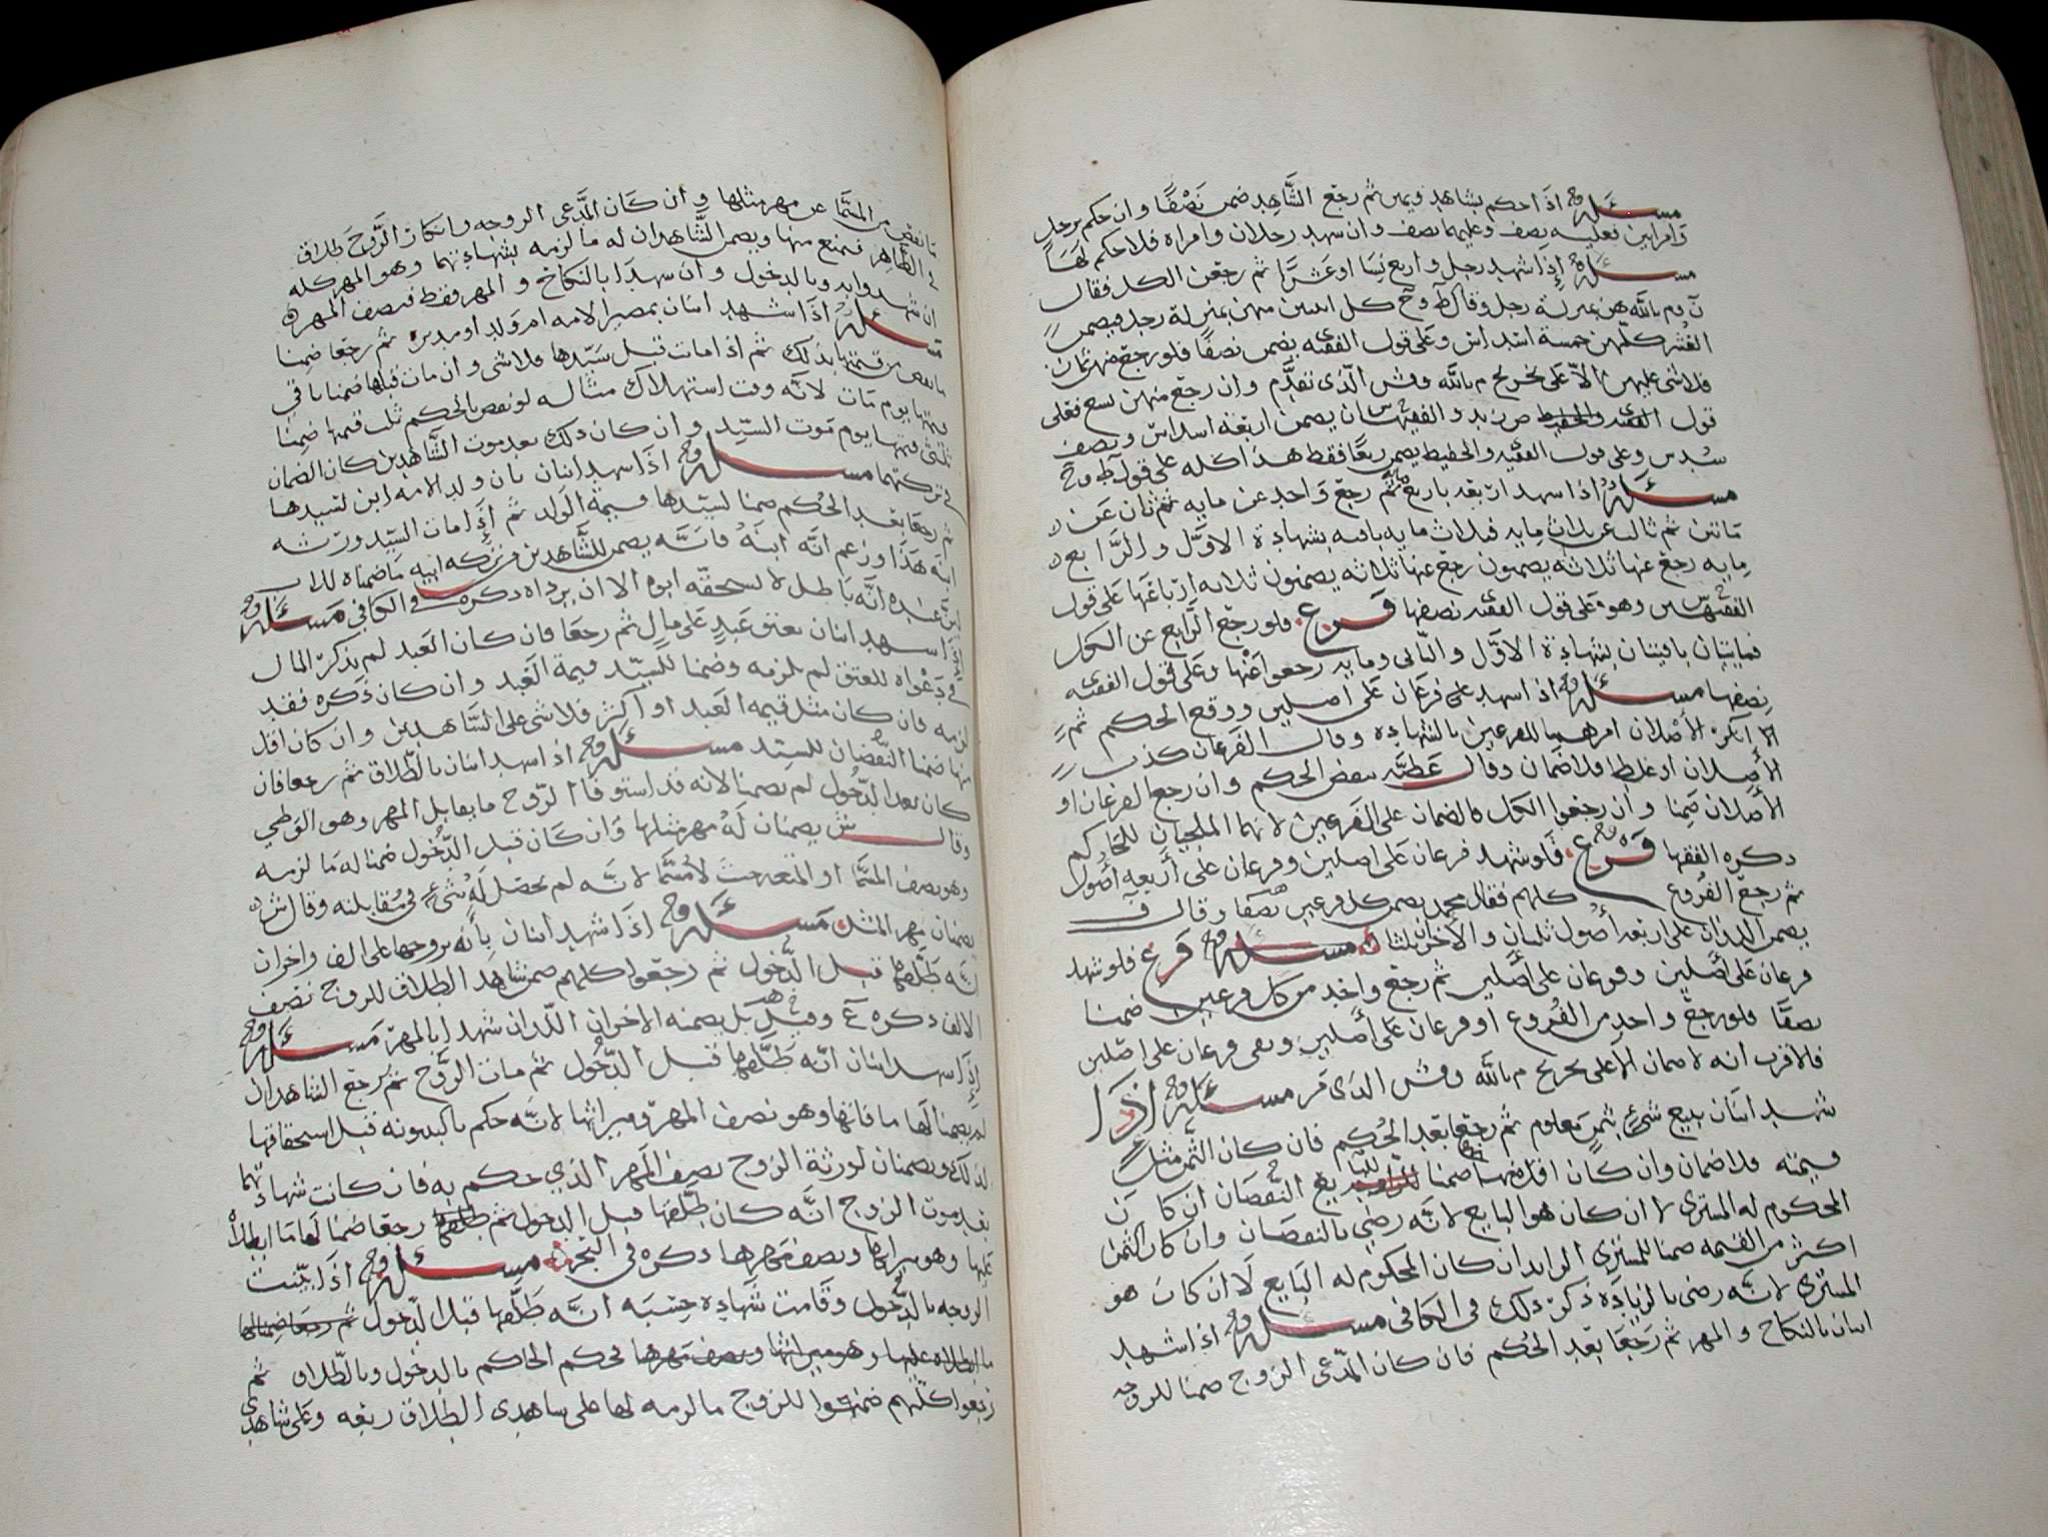 مسئلة اذا حكم بشاهد ويمين ثم رجع الشاهد ضمن نصفا وان حكم برجل
وامراتين فعليه نصف وعليهما نصف وان شهد رجلان وامراة فلا حكم لها
مسئلة إذا شهد رجل واربع نسا او عشرا ثم رجعن الكل فقال
م بالله هن بمنزلة رجل وقال ط وح كل اثنتين منهن بمنزلة رجل فيضمن
العشر كلهن خمسة اسداس وعلى قول الفقيه يضمن نصفا فلو رجع منهن ثمان
فلا شي عليهن الا على تخريج م بالله وش الذي تقدم وان رجع منهن تسع فعلى
قول الفقيه ص زيد والفقيه س ان يضمن اربعة اسداس ونصف
سدس وعلى قول الفقيه والحفيظ يضمن ربعا فقط هذا كله على قول ط وح
مسئلة اذا شهد اربعة باربع مائة ثم رجع واحد عن مايه ثم ثان عن
مائتين ثم ثالث عن ثلاث مايه فثلاث مايه باقيه بشهادة الاول والرابع
مايه رجع عنها ثلاثه يضمنون رجع عنها ثلاثه يضمنون ثلاثه ارباعها على قول
الفقيه س وهو على قول الفقيه نصفها فرع فلو رجع الرابع عن الكل
فمايتان باقيتان بشهادة الاول والثاني ومايه رجعوا عنها وعلى قول الفقيه
نصفها مسئلة اذا شهد على فرعان على اصلين ووقع الحكم ثم
الاصلان امرهما للفرعين بالشهاده وقال الفرعان كذب
الأصلان او غلط فلا ضمان وقال عطيه ينقض الحكم وان رجع الفرعان او
الأصلان ضمنا وان رجعوا الكل فالضمان على الفرعين لانهما الملجيان للحاكم
ذكره الفقها فرع فلو شهد فرعان على اصلين وفرعان على أربعه أصول
ثم رجع الفروع كلهم فقال محمد يضمن كل فرعين نصفا وقال ف
يضمن اللذان على اربعه أصول ثلثان والآخران ثلثا مسئلة فرع فلو شهد
فرعان على أصلين وفرعان على أصلين ثم رجع واحد من كل فرعين ضمنا
نصفا فلو رجع واحد من الفروع او فرعان على أصلين وبقي فرعان على اصلين
فالاقرب انه لا ضمان الا على تخريج م بالله وش الذي مر مسئلة إذا
شهد اثنان ببيع شيء بثمن معلوم ثم رجعا بعد الحكم فان كان الثمن مثل
قيمته فلا ضمان وان كان اقل منها ضمنا للبايع النقصان ان كان
المحكوم له المشتري لا ان كان هو البايع لانه رضي بالنقصان وان كان الثمن
اكثر من القيمه ضمنا للمشتري الزايد ان كان المحكوم له البايع لا ان كان هو
المشتري لانه رضى بالزيادة ذكر ذلك في الكافي مسئلة اذا شهد
اثنان بالنكاح والمهر ثم رجعا بعد الحكم فان كان المدعى الزوج ضمنا للزوجه
ما نقص من المسما عن مهر مثلها وان كان المدعى الزوجه وانكار الزوج طلاق
في الظاهر فيمنع منها ويضمن الشاهدان له ما لزمه بشهادتهما وهو المهر كله
ان شهدوا به وبالدخول وان شهدا بالنكاح والمهر فقط فنصف المهر
مسئلة اذا شهد اثنان بمصير الامه ام ولد او مدبره ثم رجعا ضمنا
ما نقص من قيمتها بذلك ثم اذا ماتت قبل سيدها فلا شي وان مات قبلها ضمنا باقي
قيمتها يوم مات لانه وقت استهلاك مثاله لو نقص بالحكم ثلث قيمتها ضمنا
ثلثي قيمتها يوم موت السيد وان كان ذلك بعد موت الشاهدين كان الضمان
في تركتهما مسئلة اذا شهد اثنان بان ولد الامه ابن لسيدها
ثم رجعا بعد الحكم ضمنا لسيدها قيمة الولد ثم إذا مات السيد ورثه
ابنه هذا وزعم انه ابنه فانه يضمن للشاهدين من تركه ابيه ما ضمناه للاب
انه باطل لا يستحقه ابوه الا ان يرداه ذكره في الكافي مسئلة
اذا شهد اثنان بعتق عبد على مال ثم رجعا فان كان العبد لم يذكر المال
في دعواه للعتق لم يلزمه وضمنا للسيد قيمة العبد وان كان ذكره فقد
لزمه فان كان مثل قيمه العبد او أكثر فلا شي على الشاهدين وان كان اقل
منها ضمنا النقصان للسيد مسئلة اذا شهد اثنان بالطلاق ثم رجعا فان
كان بعد الدخول لم يضمنا لانه قد استوفا الزوج ما يقابل المهر وهو الوطي
وقال ش يضمنان له مهر مثلها وان كان قبل الدخول ضمنا له ما لزمه
وهو نصف المسما او المتعه حيث لا مسما لانه لم يحصل له شيء في مقابلته وقال ش
يضمنان مهر المثل مسئلة اذا شهد اثنان بأنه تزوجها على الف واخران
انه طلقها قبل الدخول ثم رجعوا كلهم ضمن شاهدا الطلاق للزوج نصف
الالف ذكره ع وقيل بل يضمنه الاخران اللذان شهدا بالمهر مسئلة
إذا شهد اثنان انه طلقها قبل الدخول ثم مات الزوج ثم رجع الشاهدان
لم يضمنا لها ما فاتها وهو نصف المهر وميراثها لانه حكم بالبينونه قبل استحقاقها
لذلك ويضمنان لورثة الزوج نصف المهر الذي حكم به فان كانت شهادتهما
بعد موت الزوج انه كان طلقها قبل الدخول ثم رجعا ضمنا لها ما ابطلاه
عليها وهو ميراثها ونصف مهرها ذكره في البحر مسئلة اذا بينت
الزوجه بالدخول وقامت شهادة حسبه انه طلقها قبل الدخول ثم رجعا ضمنا لها
ما ابطلاه عليها وهو ميراثها ونصف مهرها فحكم الحاكم بالدخول وبالطلاق ثم
رجعوا كلهم ضمنوا للزوج ما لزمه لها على شاهدي الطلاق ربعه وعلى شاهدي